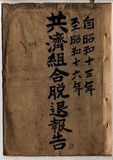 自昭和十三年
至昭和十六年
共濟組合脱退報告